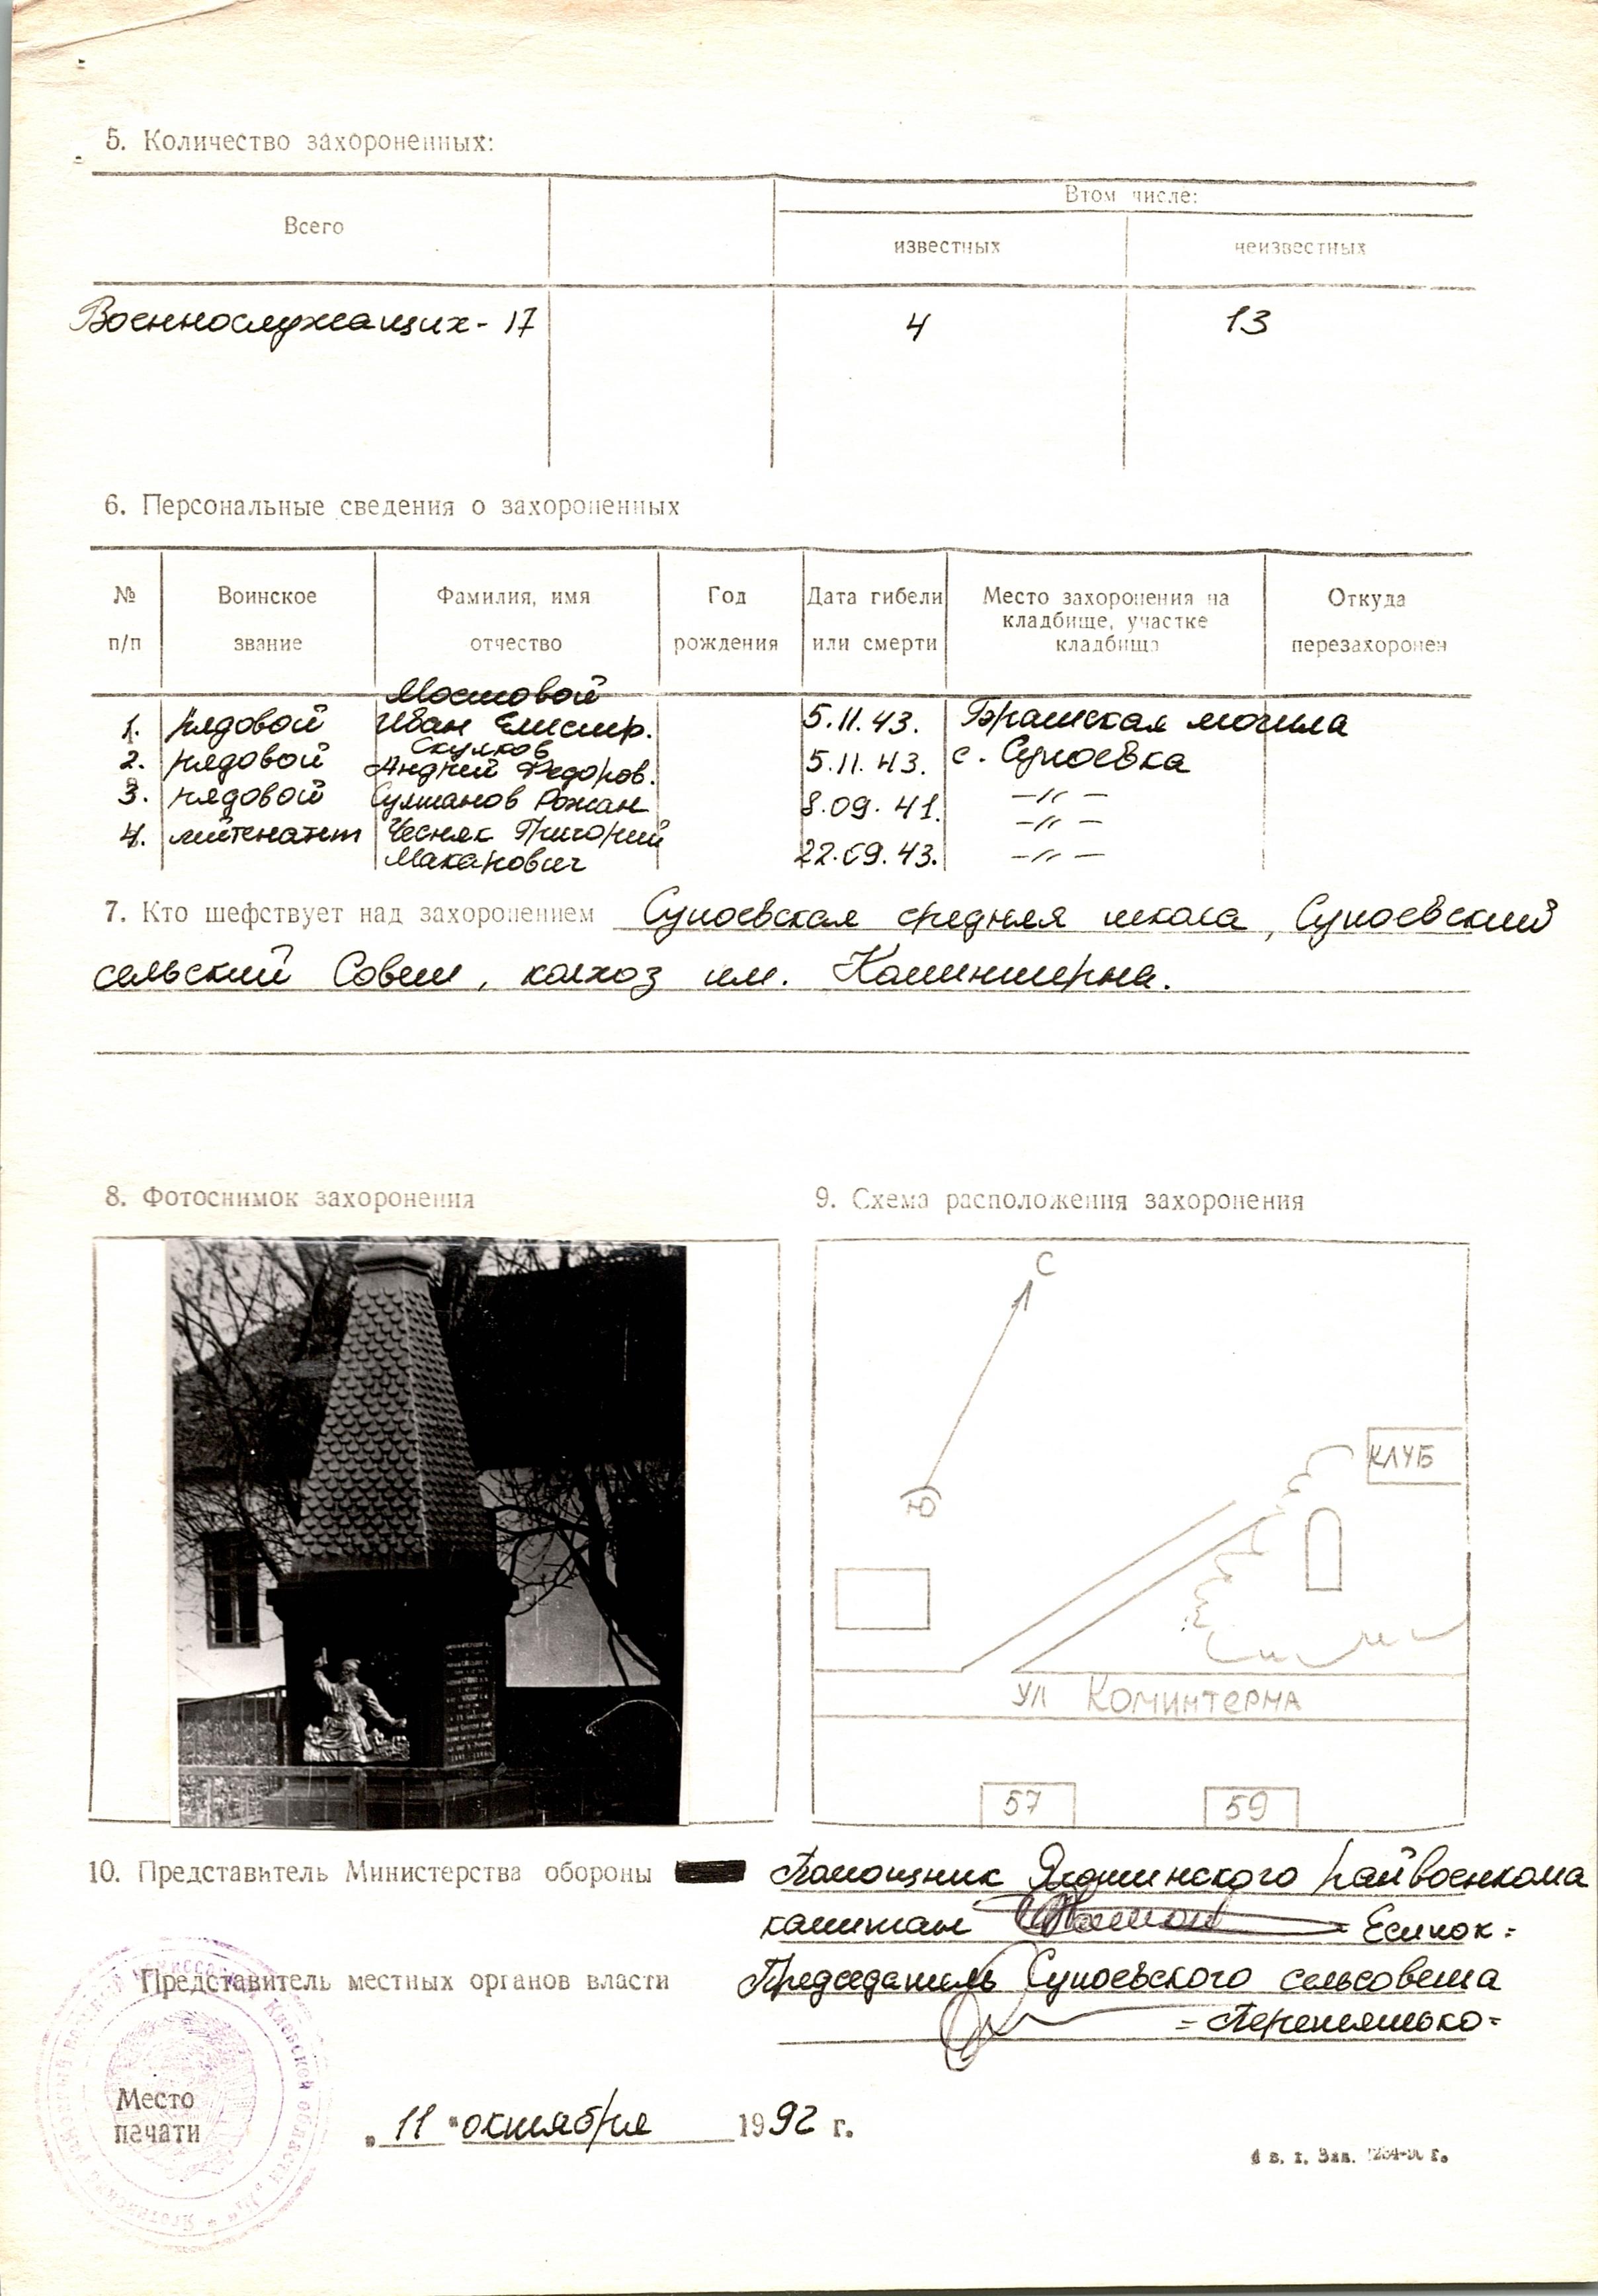 5. Количество захороненных:
Всего
Втом числе:
известных
неизвестных
Военнослужащих - 17
4
13
6. Персональные сведения о захороненных
№ п/п
Воинское звание
Фамилия, имя отчество
Год рождения
Дата гибели или смерти
Место захоронения на кладбище, участке кладбища
Откуда перезахоронен
Мостовой
1. рядовой Иван Елисир. 5.11.43. Братская могила
Скулков
2. рядовой Андрей Федоров. 5.11.43. с. Супоевка
3. рядовой Султанов Рожан 8.09.41. -"-
-"-
4. лейтенант Чесняк Григорий
Макарович 22.09.43. -"-
7. Кто шефствует над захоронением Супоевская средняя школа, Супоевский
сельский Совет, колхоз им. Коминтерна.
8. Фотоснимок захоронения
9. Схема расположения захоронения
С
Ю
КЛУБ
УЛ КОМИНТЕРНА
57
59
10. Представитель Министерства обороны Помощник Яготинского райвоенкома
капитан Есипок =
Представитель местных органов власти Председатель Супоевского сельсовета
= Перепятько =
Место
печати
„ 11 " октября 1992 г.